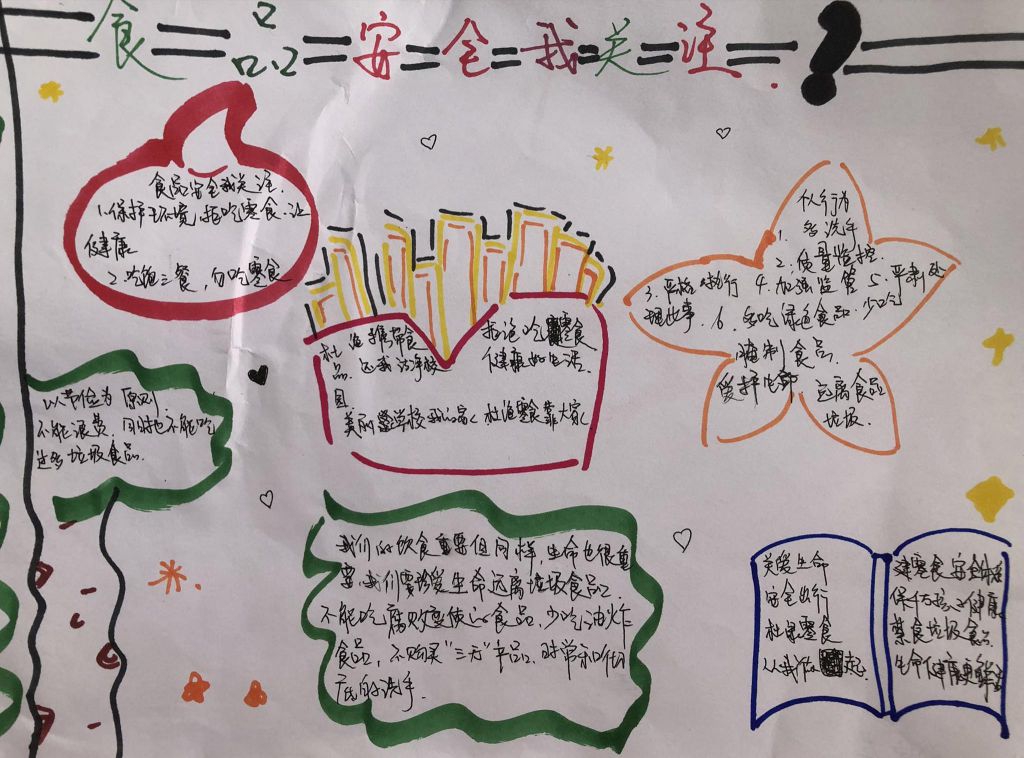 食品安全我关注?
食品安全我关注.
1.保护环境,拒吃零食,让
健康
2.吃饱三餐,勿吃零食
以节俭为原则
不能浪费,同时也不能吃
过多垃圾食品.
杜绝携带食
品.还我洁净校
园
拒绝吃零食
健康如生活.
美丽 学校 杜绝零食靠大家
从行为
1.多洗手
2.质量监控
3.严格 执行 4.加强监管 5.严肃处
理此事. 6.多吃绿色食品.少吃
腌制食品.
爱 远离食品
垃圾.
我们的饮食重要但同样,生命也很重
要.我们要珍爱生命远离垃圾食品.
不能吃腐败变质的食品,少吃油炸
食品,不购买"三无"产品.时常
洗手.
关爱生命
安全出行
杜绝零食
从我做起.
建零食安全体系
保千万孩子健康
禁食垃圾食品.
生命健康更鲜活